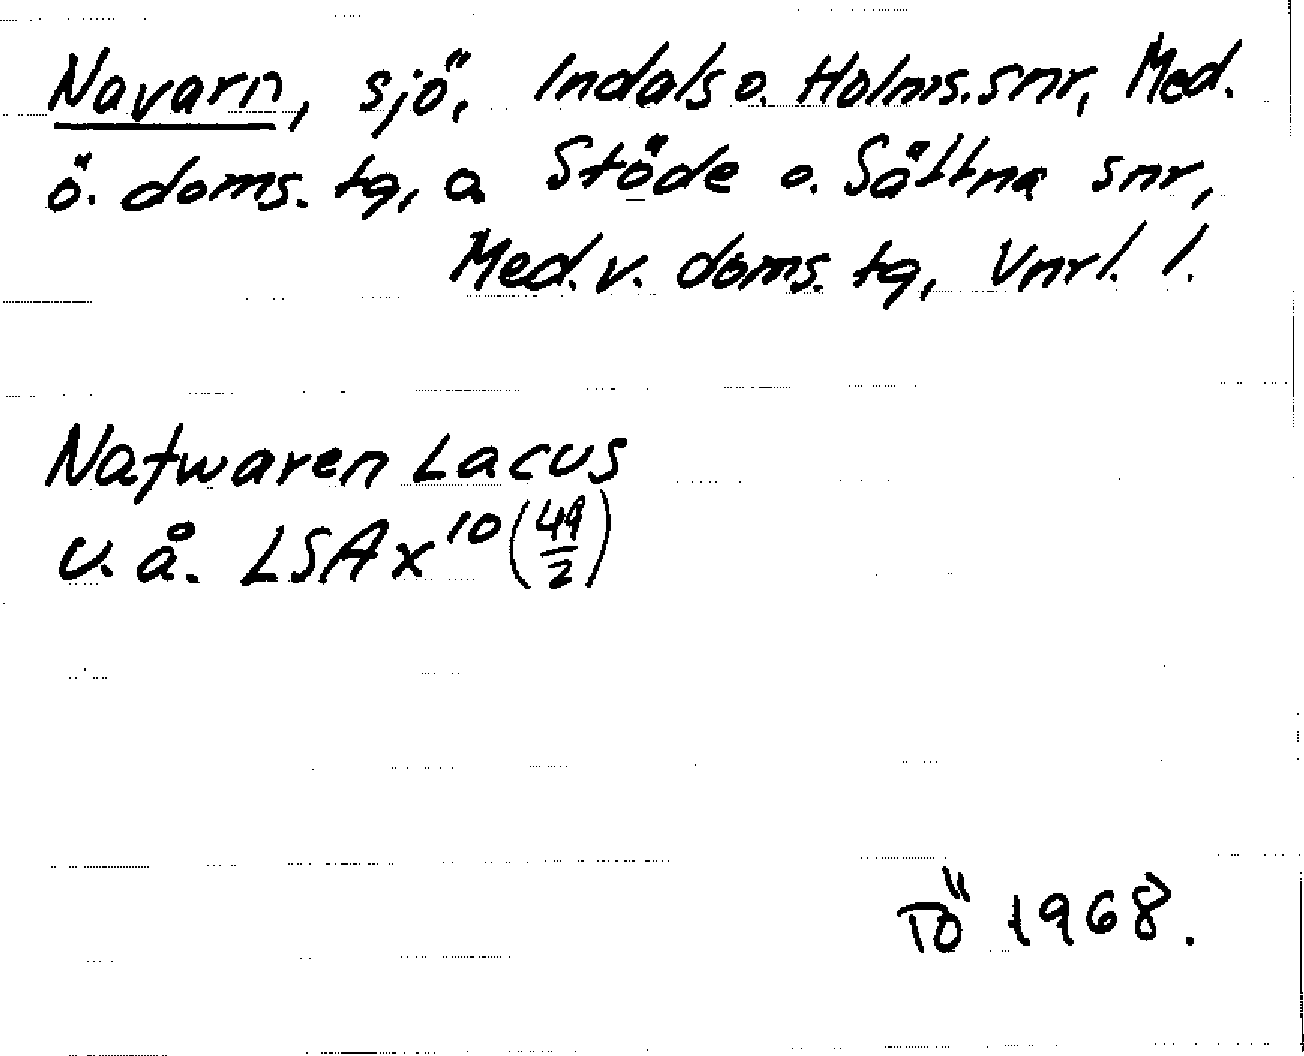 Navarn, sjö, Indals o. Holms. snr, Med.
ö. doms. tg, a Stöde o. Sättna snr,
Med. v. doms. tg, Vnrl. l.
Nafwaren Lacus
u. å. LSA x¹⁰ (49/2)
Tö 1968.